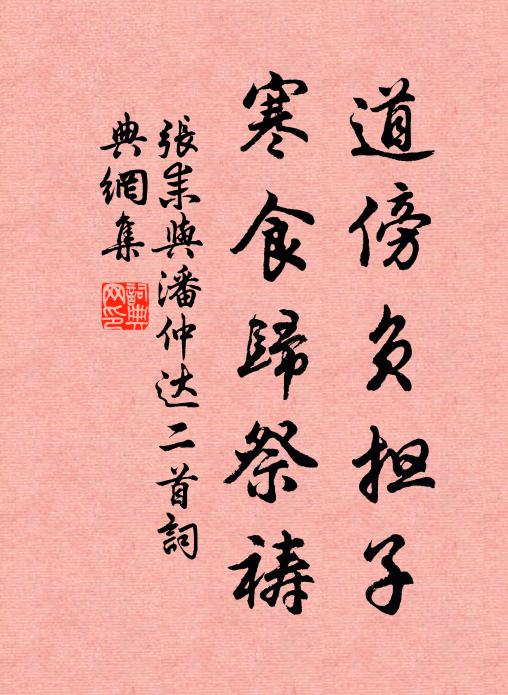 道傍负担子
寒食歸祭禱
張耒與潘仲达二首詞
典網集
詞典網印